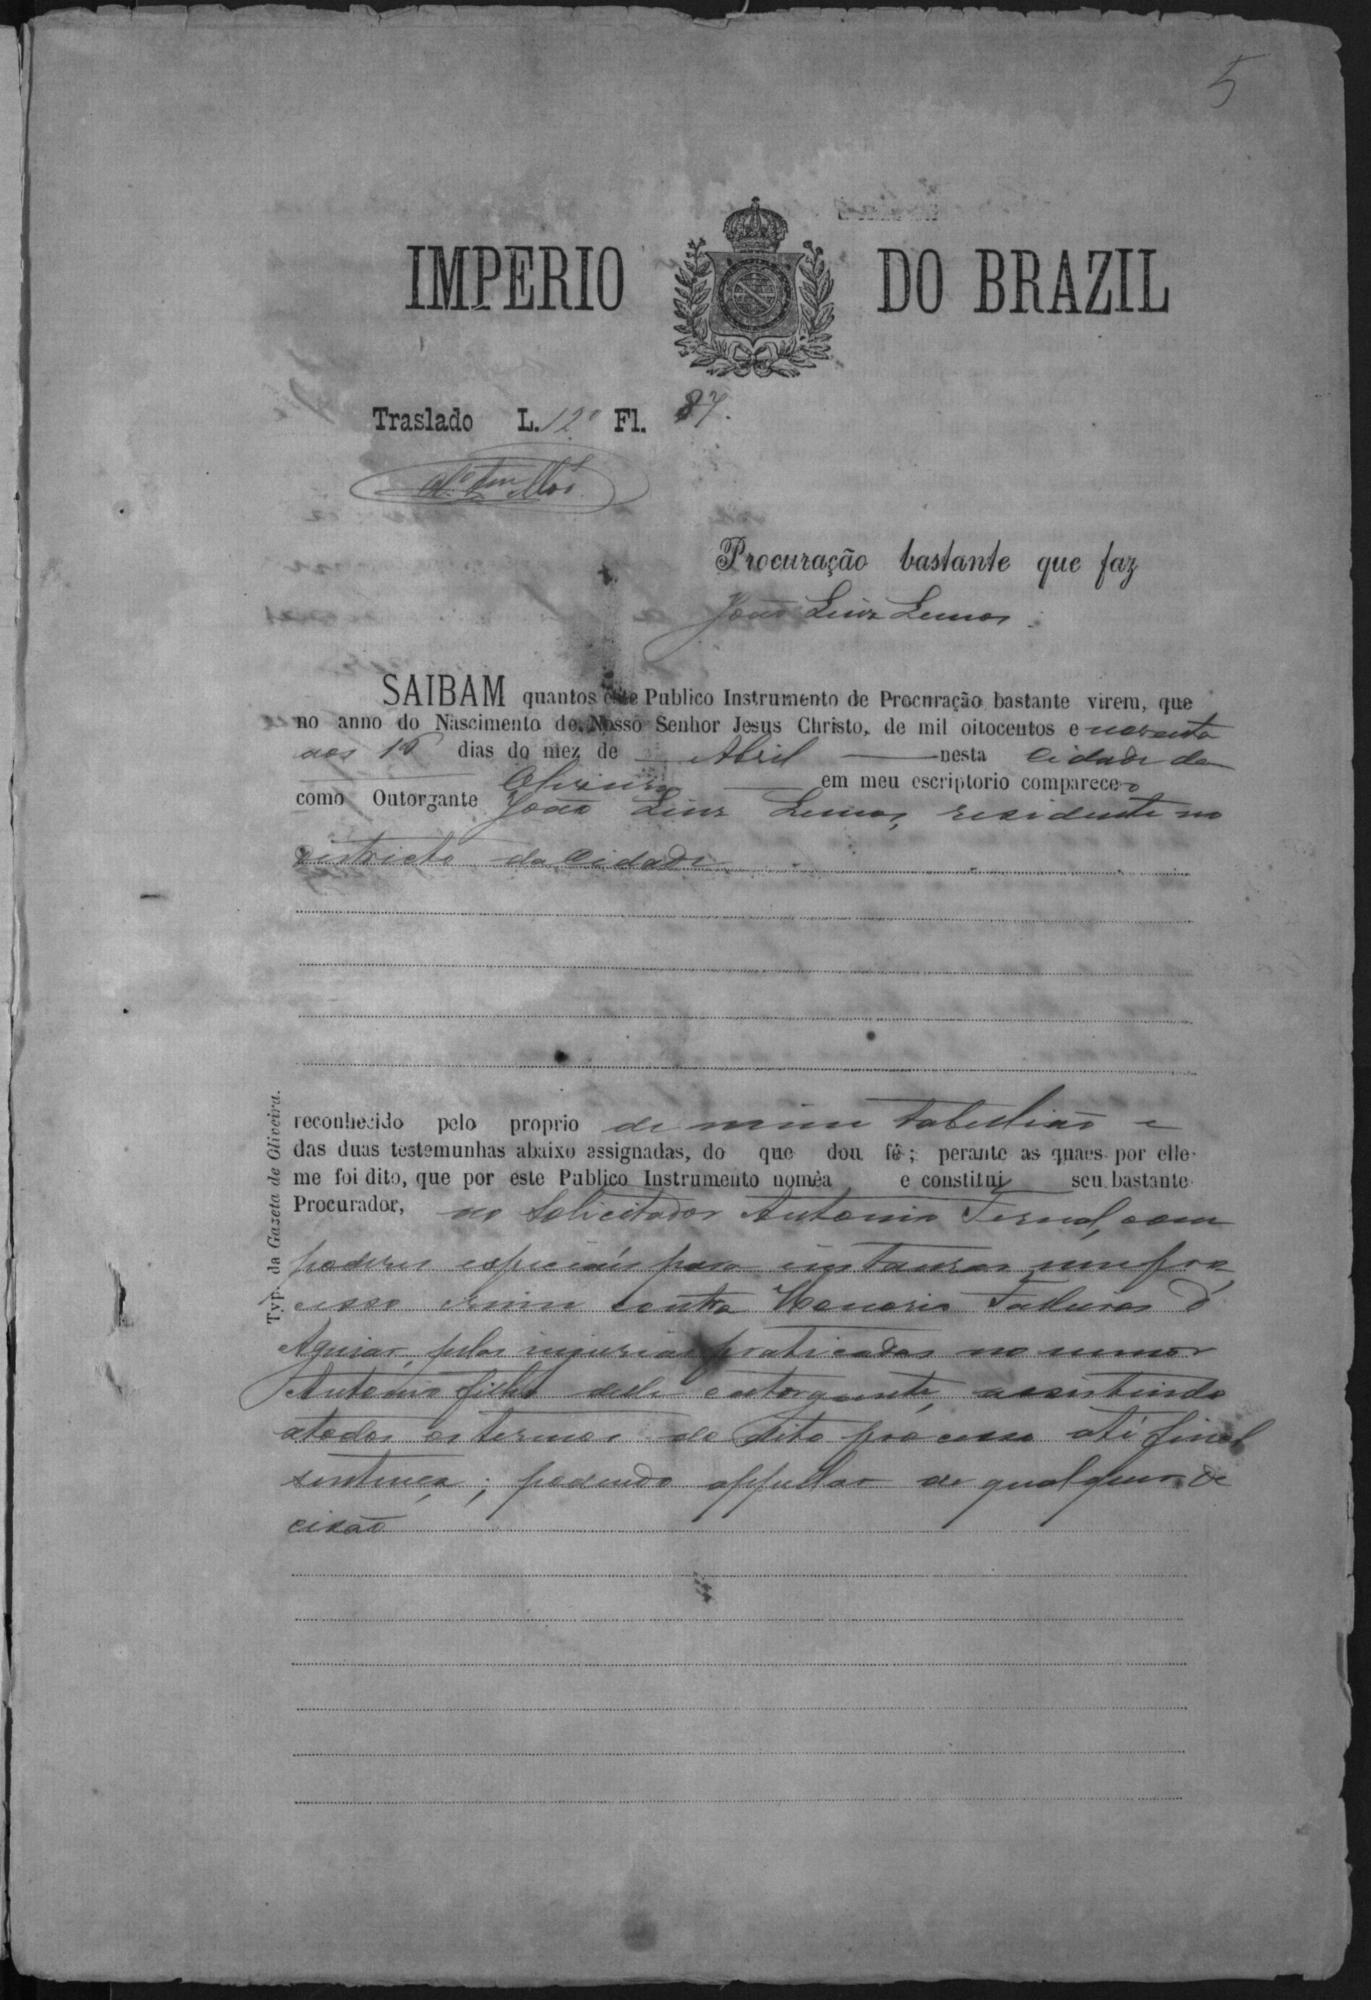 5
IMPERIO DO BRAZIL
Traslado L. 12º Fl. 87.
Procuração bastante que faz
João Luiz Lemos.
SAIBAM quantos este Publico Instrumento de Procuração bastante virem, que
no anno do Nascimento de Nosso Senhor Jesus Christo, de mil oitocentos e noventa
aos 16 dias do mez de Abril nesta Cidade de
Oliveira em meu escriptorio compareceo
como Outorgante João Luiz Lemos, residente no
districto da Cidade
reconhecido pelo proprio de mim Tabellião e
das duas testemunhas abaixo assignadas, do que dou fé; perante as quaes por elle
me foi dito, que por este Publico Instrumento nomêa e constitui seu bastante
Procurador, ao Solicitador Antonio Fernal, com
poderes especiáes para instaurar um pro
cesso crime contra Honorio d'
Aguiar, pelas injurias praticadas no menor
Antonio filho delle outorgante, assistindo
a todos os termos do dito processo até final
sentença; podendo appellar de qualquer de
cisão
Typ. da Gazeta de Oliveira.